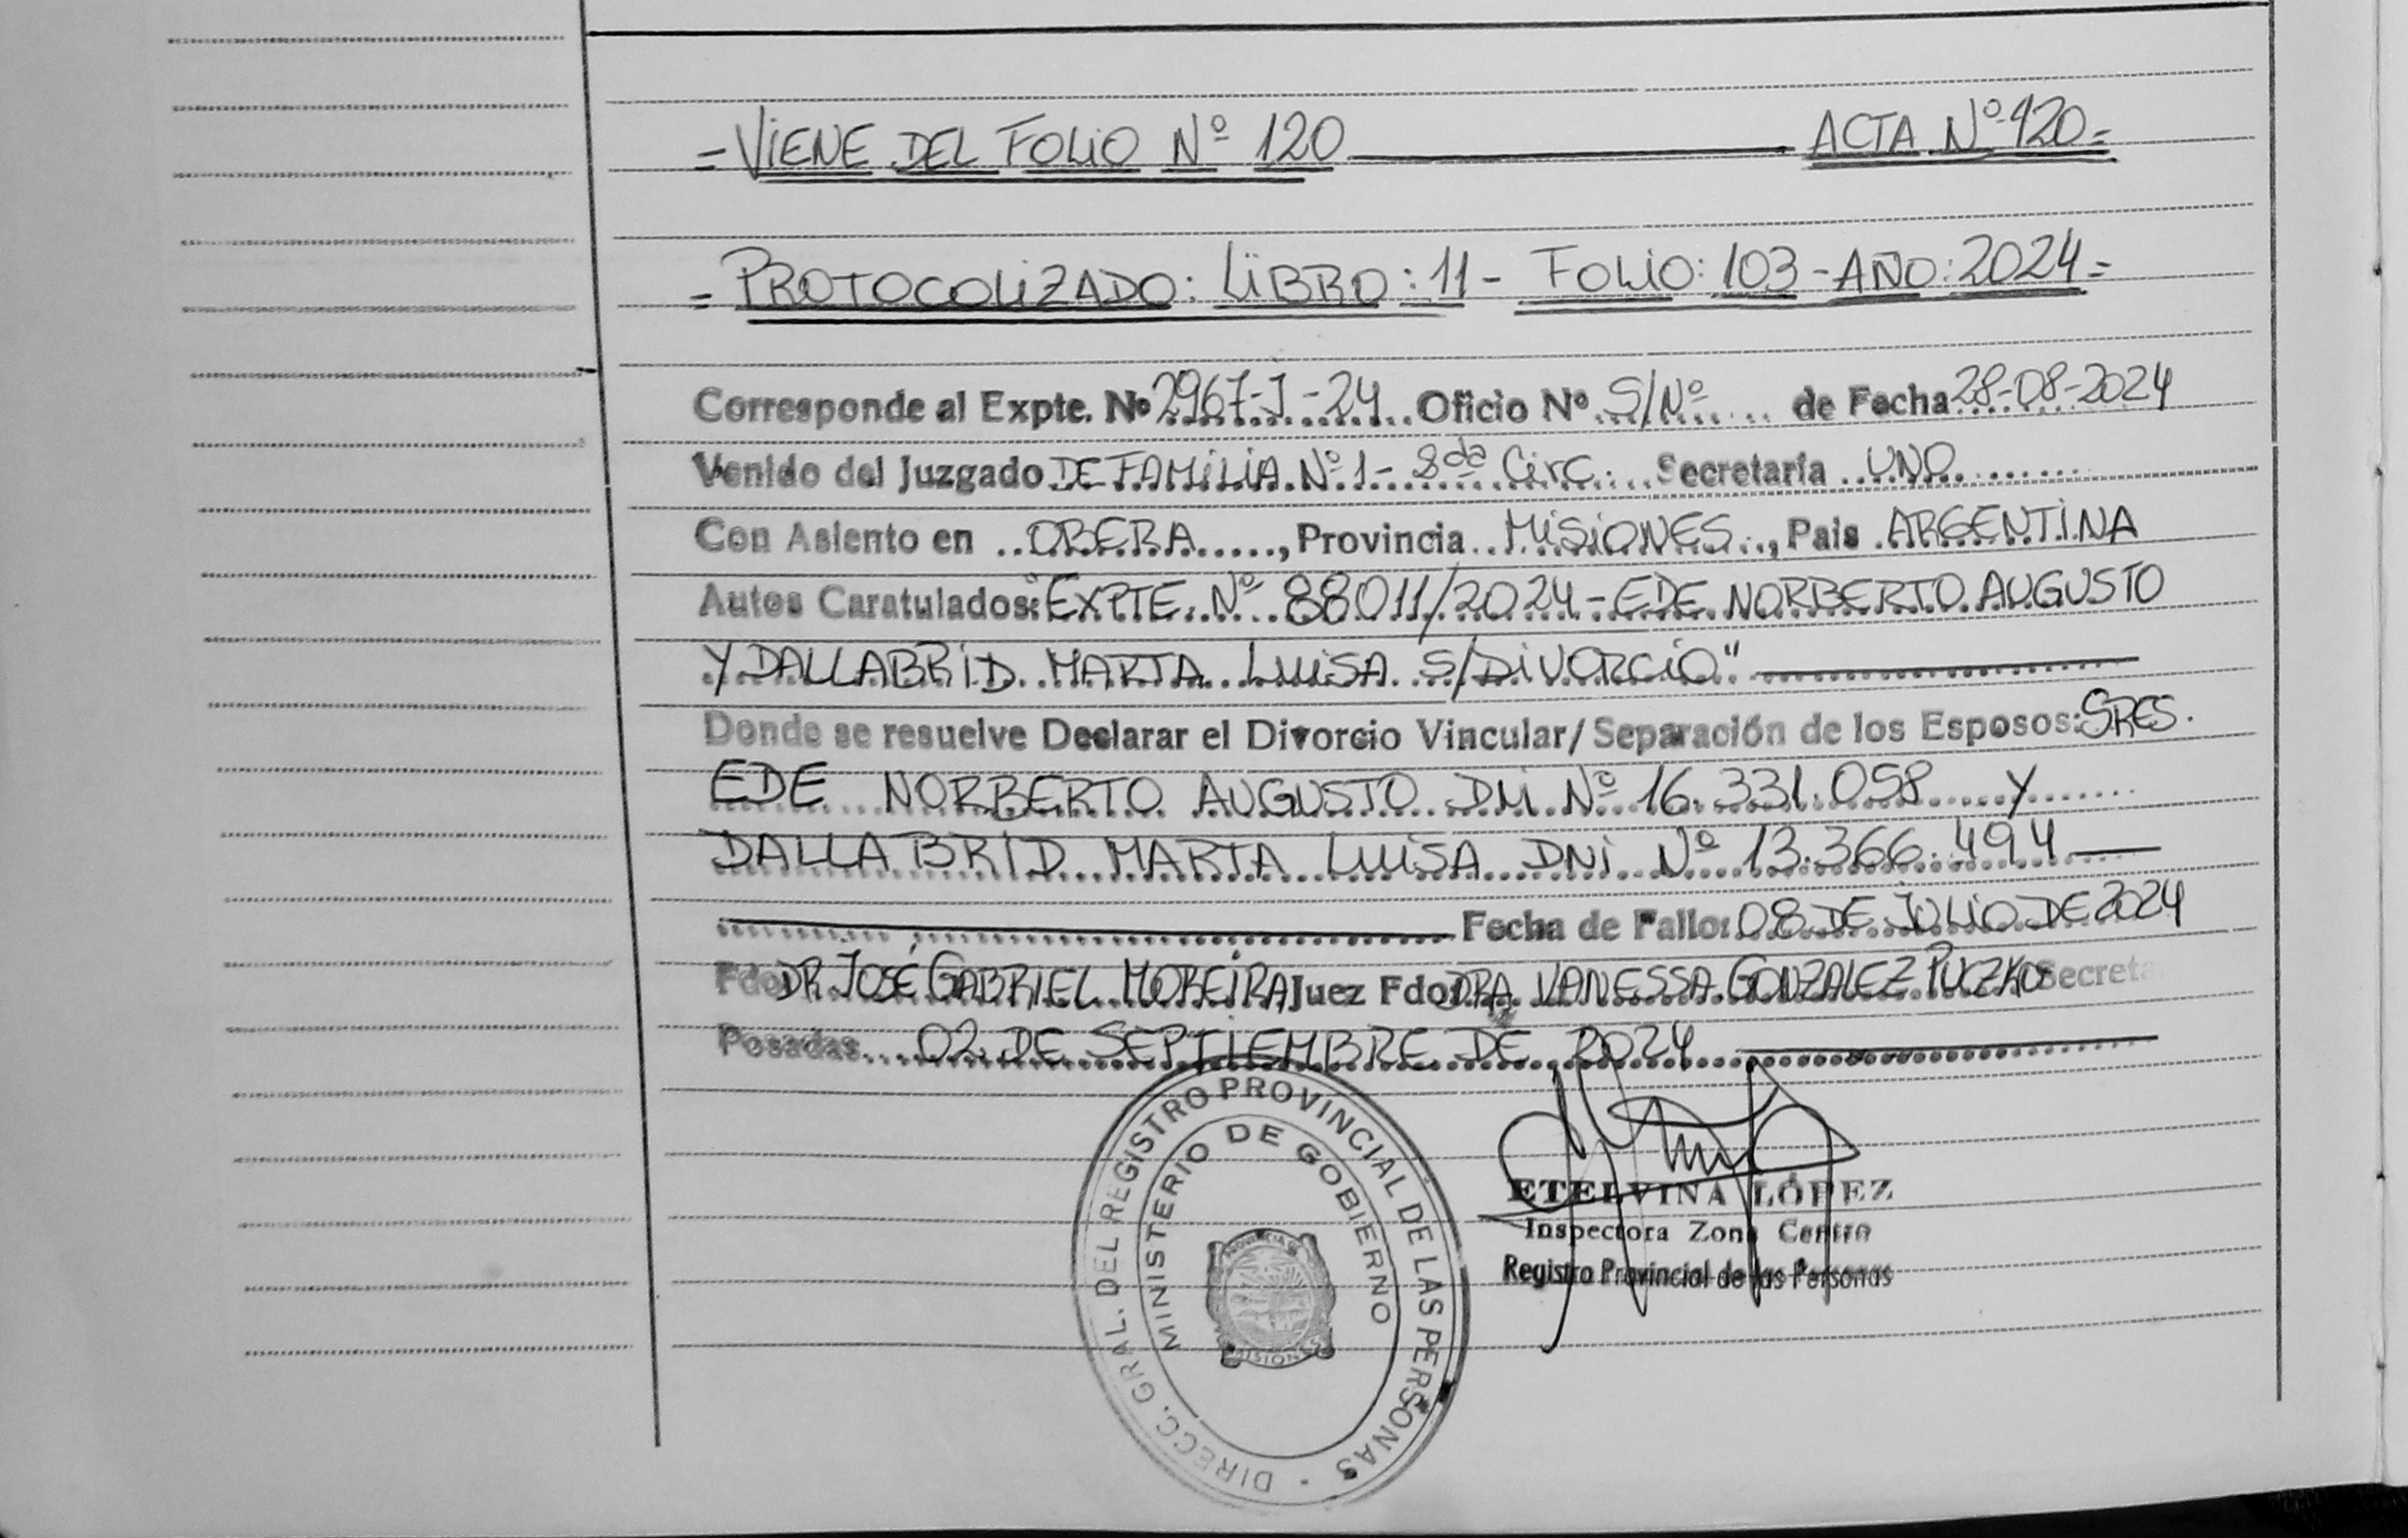 = VIENE DEL FOLIO Nº 120 ACTA Nº 120 =
= PROTOCOLIZADO: LIBRO: 11 - FOLIO: 103 - AÑO: 2024 =
Corresponde al Expte. Nº 2967-J-24 Oficio Nº S/Nº de Fecha 28-08-2024
Venido del Juzgado DE FAMILIA Nº 1 - 2da Circ. Secretaría UNO
Con Asiento en OBERA, Provincia MISIONES, Pais ARGENTINA
Autos Caratulados: EXPTE. Nº 88011/2024 - EDE NORBERTO AUGUSTO
Y DALLABRID MARTA LUISA S/DIVORCIO"
Donde se resuelve Declarar el Divorcio Vincular/Separación de los Esposos: SRES.
EDE NORBERTO AUGUSTO DNI Nº 16.331.058 Y
DALLABRID MARTA LUISA DNI Nº 13.366.494
Fecha de Fallo: 08 DE JULIO DE 2024
Fdo DR. JOSÉ GABRIEL MOREIRA Juez Fdo DRA. VANESSA GONZALEZ PUCZKO Secreta
Posadas 02 DE SEPTIEMBRE DE 2024
DIRECC. GRAL. DEL REGISTRO PROVINCIAL DE LAS PERSONAS -
MINISTERIO DE GOBIERNO
PROVINCIA DE
MISIONES
ETELVINA LÓPEZ
Inspectora Zona Centro
Registro Provincial de las Personas